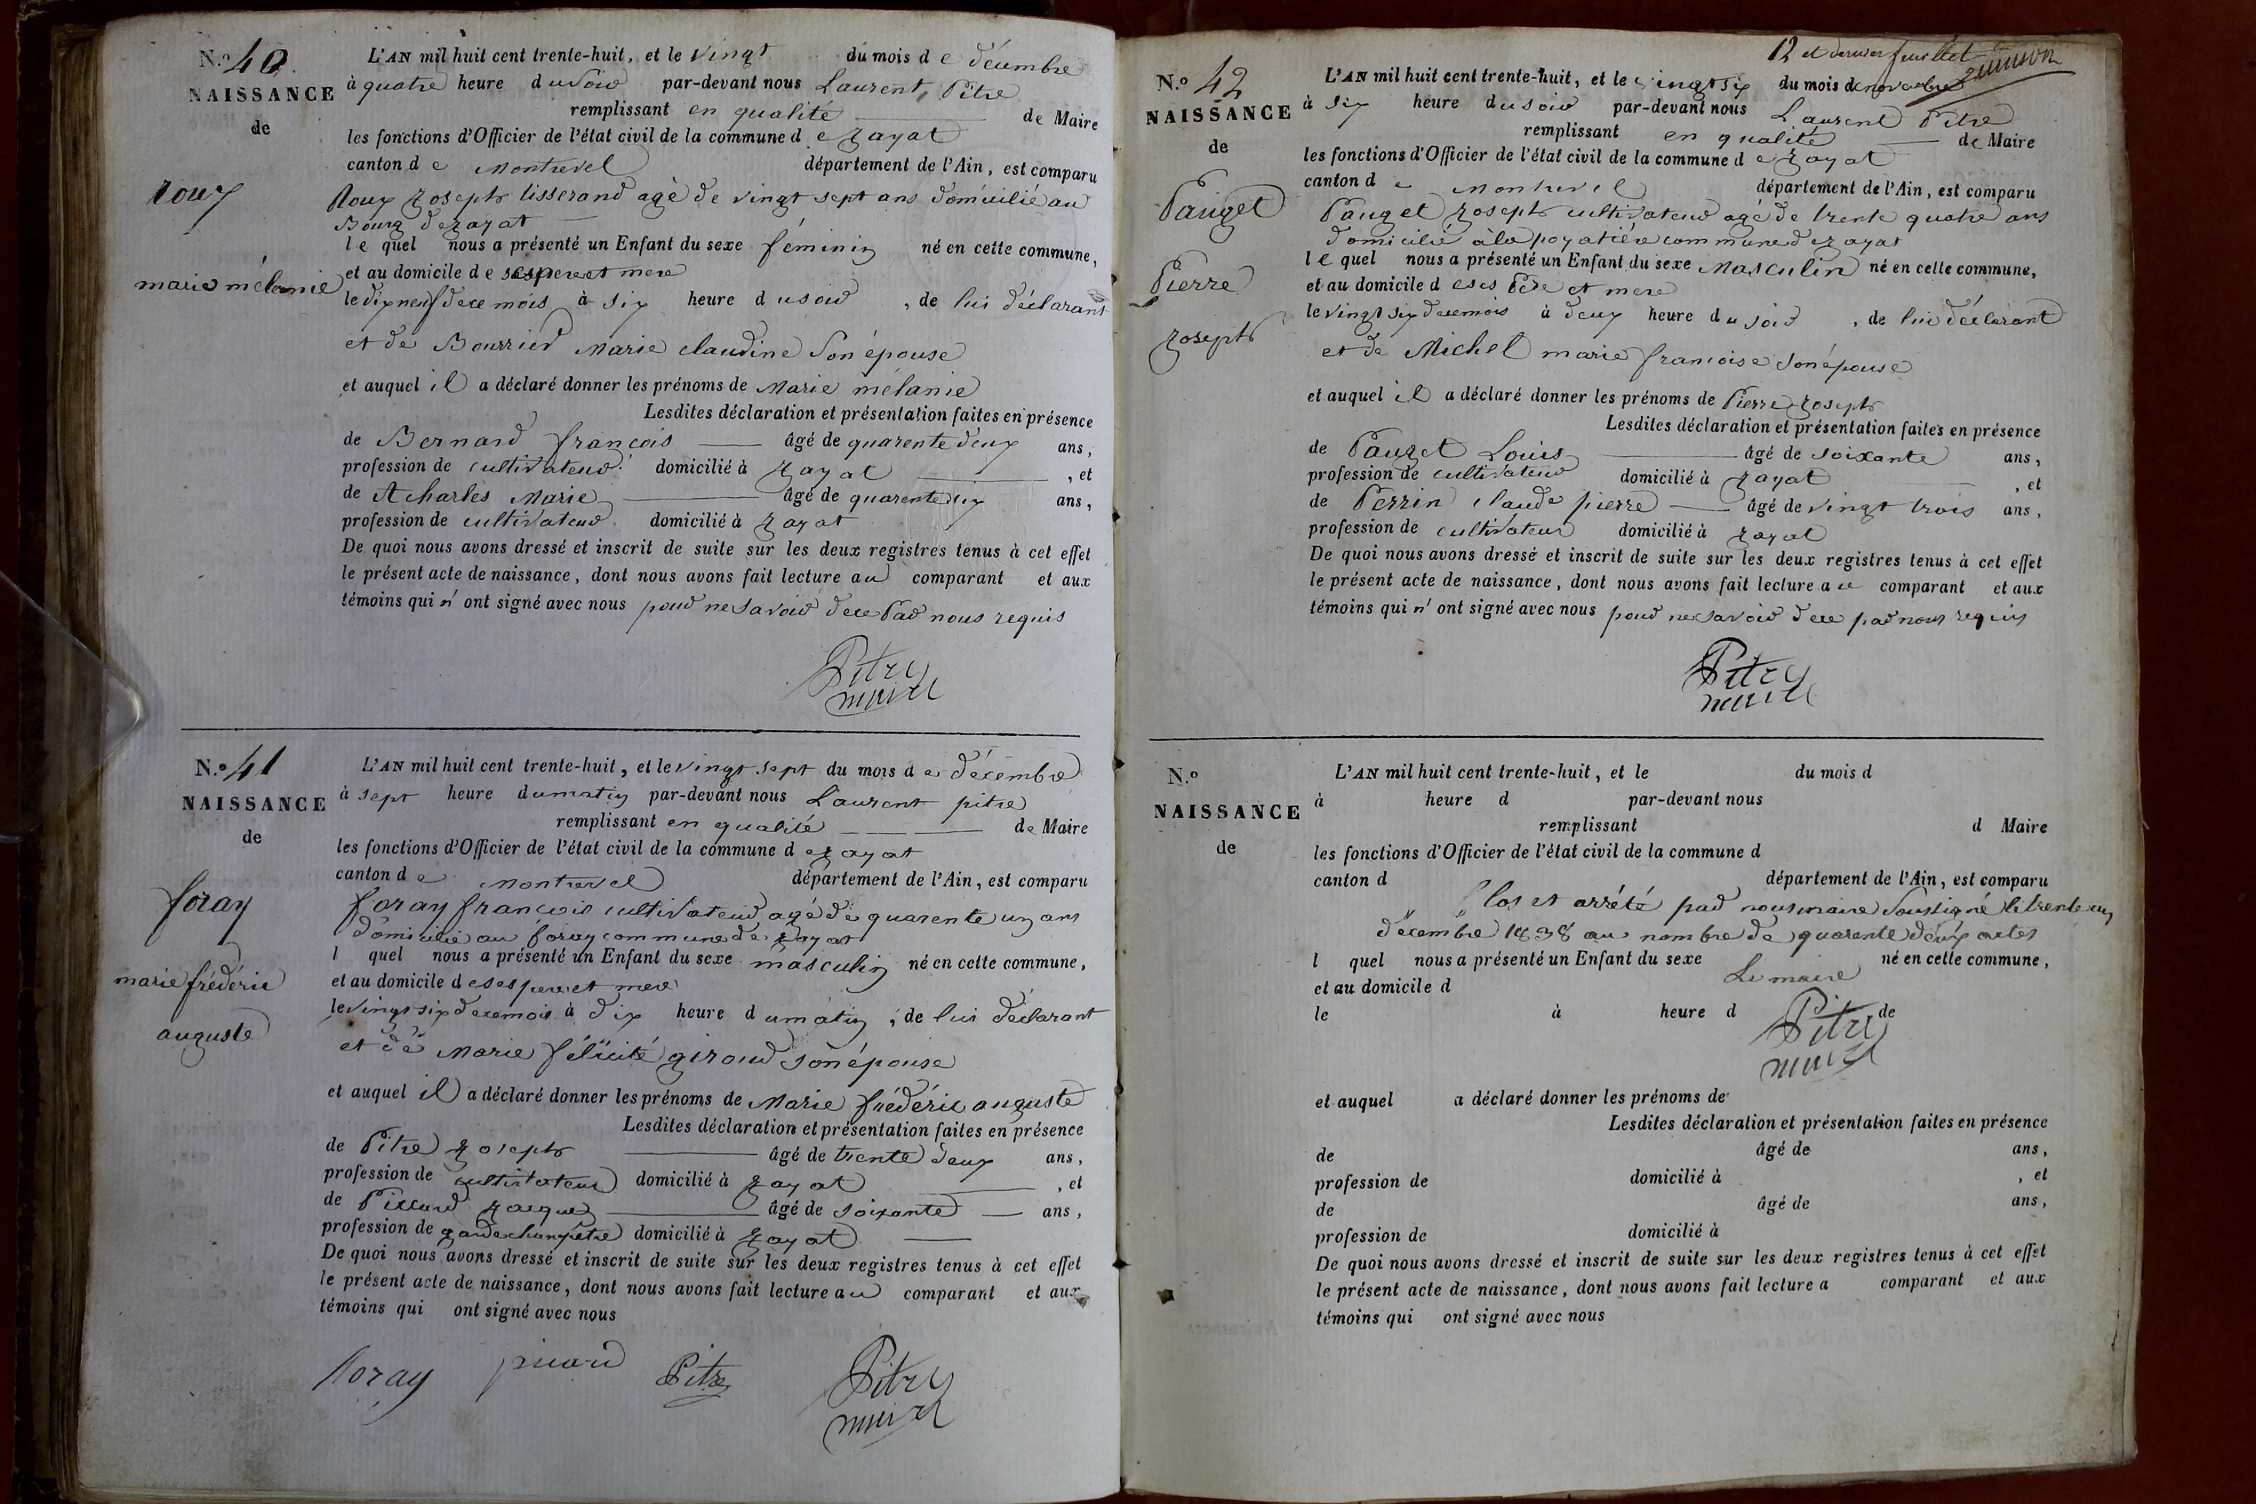 N.o 40
NAISSANCE
de
roux
marie mélanie
L'AN mil huit cent trente-huit, et le vingt du mois de décembre
à quatre heure du soir par-devant nous Laurent Pitre
remplissant en qualité de Maire
les fonctions d'Officier de l'état civil de la commune de zayat
canton de Montrevel département de l'Ain, est comparu
Roux zoseph tisserand agé de vingt sept ans domicilié au
Bourg de zayat
le quel nous a présenté un Enfant du sexe féminin né en cette commune,
et au domicile de ses pere et mere
le dix neuf de ce mois à six heure du soir, de lui déclarant
et de Bourrier Marie claudine son épouse
et auquel il a déclaré donner les prénoms de Marie mélanie
Lesdites déclaration et présentation faites en présence
de Bernard françois âgé de quarente deux ans,
profession de cultivateur domicilié à zayat, et
de Acharles Marie âgé de quarente six ans,
profession de cultivateur domicilié à zayat
De quoi nous avons dressé et inscrit de suite sur les deux registres tenus à cet effet
le présent acte de naissance, dont nous avons fait lecture au comparant et aux
témoins qui n'ont signé avec nous pour ne savoir de ce Par nous requis
Pitre
maire
N.o 41
NAISSANCE
de
foray
marie frédéric
auguste
L'AN mil huit cent trente-huit, et le vingt sept du mois de décembre
à sept heure du matin par-devant nous Laurent pitre
remplissant en qualité de Maire
les fonctions d'Officier de l'état civil de la commune de zayat
canton de Montrevel département de l'Ain, est comparu
foray françois cultivateur agé de quarente un ans
domicilié au foray commune de zayat
l quel nous a présenté un Enfant du sexe masculin né en cette commune,
et au domicile de ses pere et mere
le vingt six de ce mois à dix heure du matin, de lui déclarant
et de Marie félicité giroud son épouse
et auquel il a déclaré donner les prénoms de Marie frédéric auguste
Lesdites déclaration et présentation faites en présence
de Pitre zoseph âgé de trente deux ans,
profession de cultivateur domicilié à zayat, et
de zacques âgé de soixante ans,
profession de garde champetre domicilié à zayat
De quoi nous avons dressé et inscrit de suite sur les deux registres tenus à cet effet
le présent acte de naissance, dont nous avons fait lecture au comparant et aux
témoins qui ont signé avec nous
foray picard Pitre Pitre
maire
12 et dernier feuillet
N.o 42
NAISSANCE
de
Pauget
Pierre
zoseph
L'AN mil huit cent trente-huit, et le vingt six du mois de novembre
à six heure du soir par-devant nous Laurent Pitre
remplissant en qualité de Maire
les fonctions d'Officier de l'état civil de la commune de zayat
canton de Montrevel département de l'Ain, est comparu
Pauget zoseph cultivateur agé de trente quatre ans
domicilié à la poyatière commune de zayat
le quel nous a présenté un Enfant du sexe Masculin né en cette commune,
et au domicile de ses Pere et mere
le vingt six de ce mois à deux heure du soir, de lui déclarant
et de Michel marie francoise son épouse
et auquel il a déclaré donner les prénoms de Pierre zoseph
Lesdites déclaration et présentation faites en présence
de Pauget Louis âgé de soixante ans,
profession de cultivateur domicilié à zayat, et
de Perrin claude pierre âgé de vingt trois ans,
profession de cultivateur domicilié à zayat
De quoi nous avons dressé et inscrit de suite sur les deux registres tenus à cet effet
le présent acte de naissance, dont nous avons fait lecture au comparant et aux
témoins qui n'ont signé avec nous pour ne savoir de ce par nous requis
Pitre
maire
N.o
NAISSANCE
de
L'AN mil huit cent trente-huit, et le du mois d
à heure d par-devant nous
remplissant d Maire
les fonctions d'Officier de l'état civil de la commune d
canton d département de l'Ain, est comparu
Clos et arrété par nous maire soussigné le trente un
décembre 1838 au nombre de quarente deux actes
l quel nous a présenté un Enfant du sexe né en cette commune,
Le maire
et au domicile d
le à heure d de
Pitre
maire
et auquel a déclaré donner les prénoms de
Lesdites déclaration et présentation faites en présence
de âgé de ans,
profession de domicilié à, et
de âgé de ans,
profession de domicilié à
De quoi nous avons dressé et inscrit de suite sur les deux registres tenus à cet effet
le présent acte de naissance, dont nous avons fait lecture a comparant et aux
témoins qui ont signé avec nous